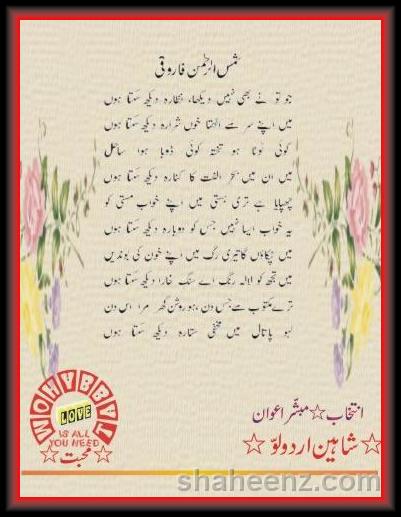 شمس الرحمٰن فاروقی
جو تو نے بھی نہیں دیکھا، نظارہ دیکھ سکتا ہوں
میں اپنے سر سے اٹھتا خوں شرارہ دیکھ سکتا ہوں
کوئی ٹوٹا ہو تختہ کوئی ڈوبا ہوا ساحل
میں ان میں بحر الفت کا کنارہ دیکھ سکتا ہوں
چھپایا ہے تری ہستی میں اپنے خواب مستی کو
یہ خواب ایسا نہیں جس کو دوبارہ دیکھ سکتا ہوں
میں ٹپکاؤں گا تیری رگ میں اپنے خون کی بوندیں
میں تجھ کو لالہ رنگ اے سنگ خارا دیکھ سکتا ہوں
ترے مکتوب سے جس دن ہو روشن گھر مرا اس دن
لہو پاتال میں مخفی ستارہ دیکھ سکتا ہوں
انتخاب☆مبشر اعوان
☆شاہین اردولوّ☆
MOHABBAT
LOVE
IS ALL
YOU NEED
☆محبت☆
shaheenz.com